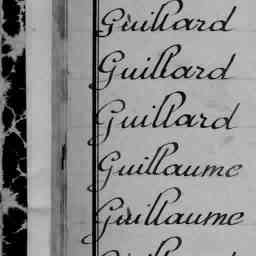 Guillard
Guillard
Guillard
Guillaume
Guillaume